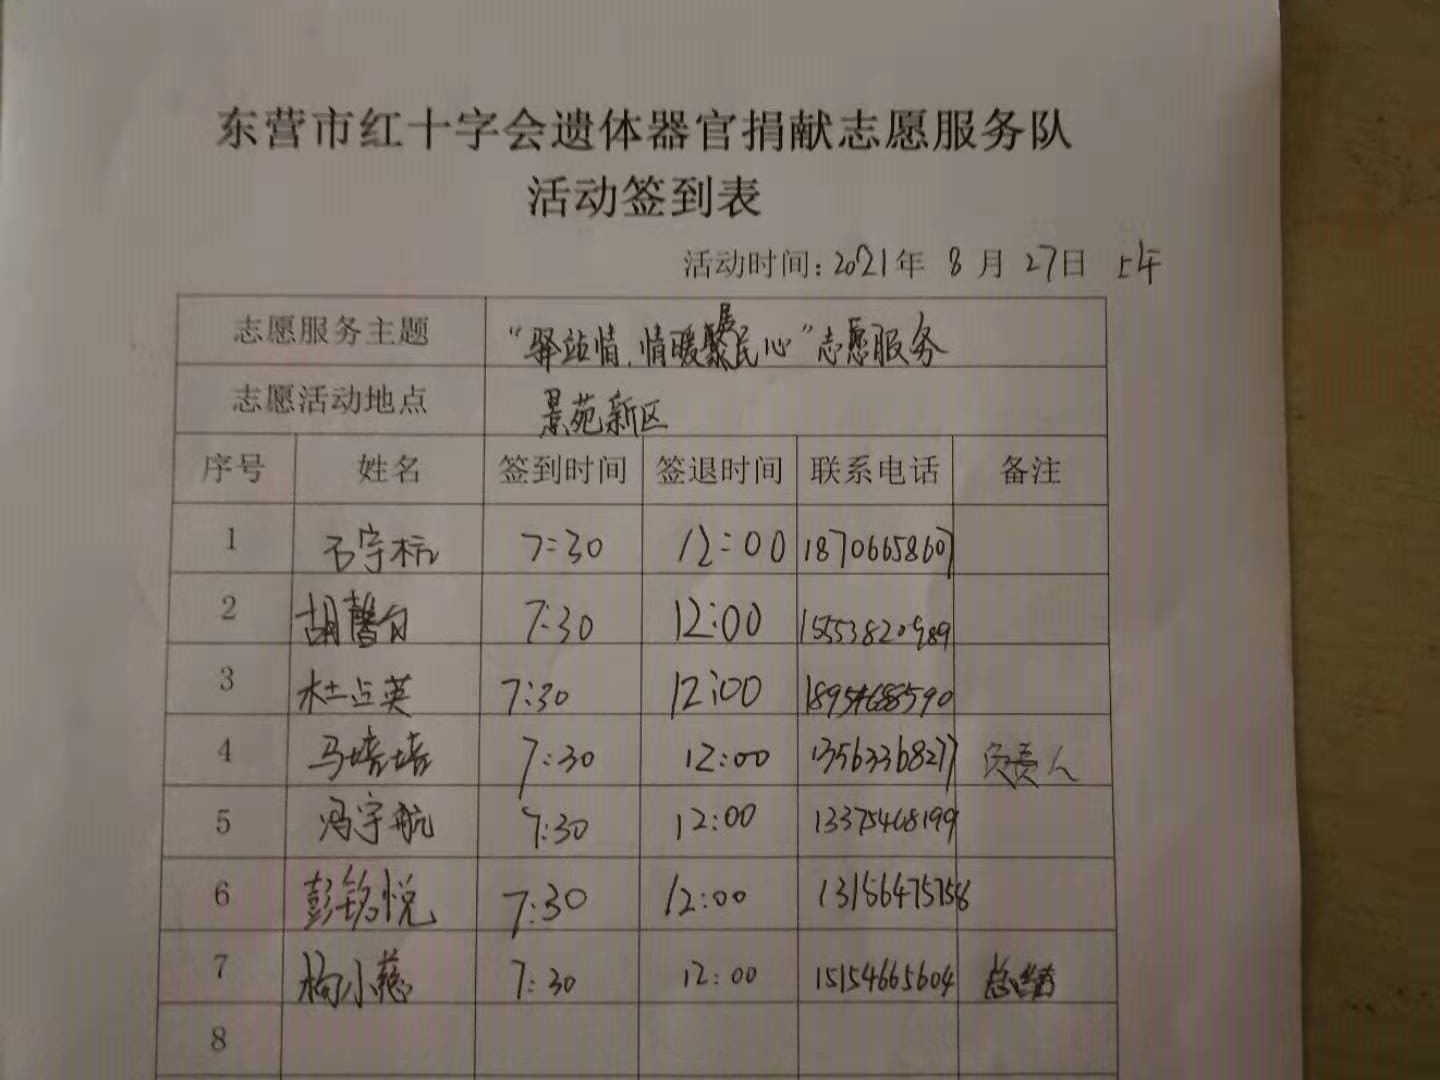 东营市红十字会遗体器官捐献志愿服务队
活动签到表
活动时间：2021年 8月 27日 上午
志愿服务主题 “驿站情，情暖居民心”志愿服务
志愿活动地点 景苑新区
序号 姓名 签到时间 签退时间 联系电话 备注
1 宇标 7:30 12:00 18706658607
2 胡馨 7:30 12:00 15553820989
3 杜占英 7:30 12:00 18954688590
4 马培培 7:30 12:00 13563368277 负责人
5 冯宇航 7:30 12:00 13375468199
6 彭铭悦 7:30 12:00 13156475758
7 杨小慈 7:30 12:00 15154665604 总结
8